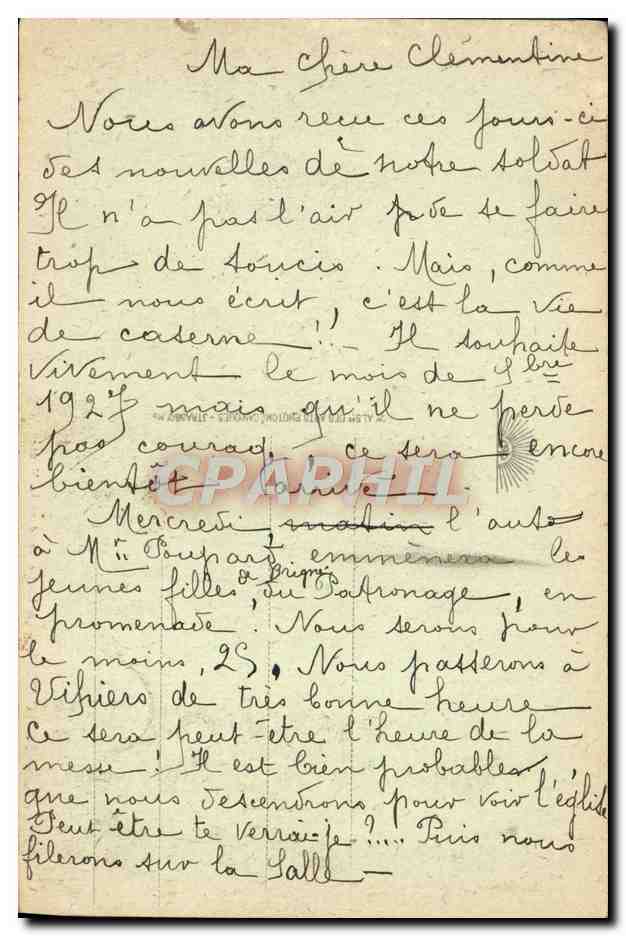 Ma chère Clémentine
Nous avons reçu ces jours-ci
des nouvelles de notre soldat
Il n'a pas l'air de se faire
trop de soucis. Mais, comme
il nous écrit, c'est la vie
de caserne !!- Il souhaite
vivement le mois de 9bre
1927 mais qu'il ne perde
pas courag, ce sera encore
bientôt arrivé -
CPAPHIL
Mercredi, matin l'auto
à Mr Poupard, emmènera les
jeunes filles, du Patronage, en
de Brigné
promenade. Nous serons pour
le moins, 25. Nous passerons à
Vihiers de très bonne heure
Ce sera peut-être l'heure de la
messe ! Il est bien probable
que nous descendrons pour voir l'église
Peut être te verrai-je ?.... Puis nous
filerons sur la Salle -